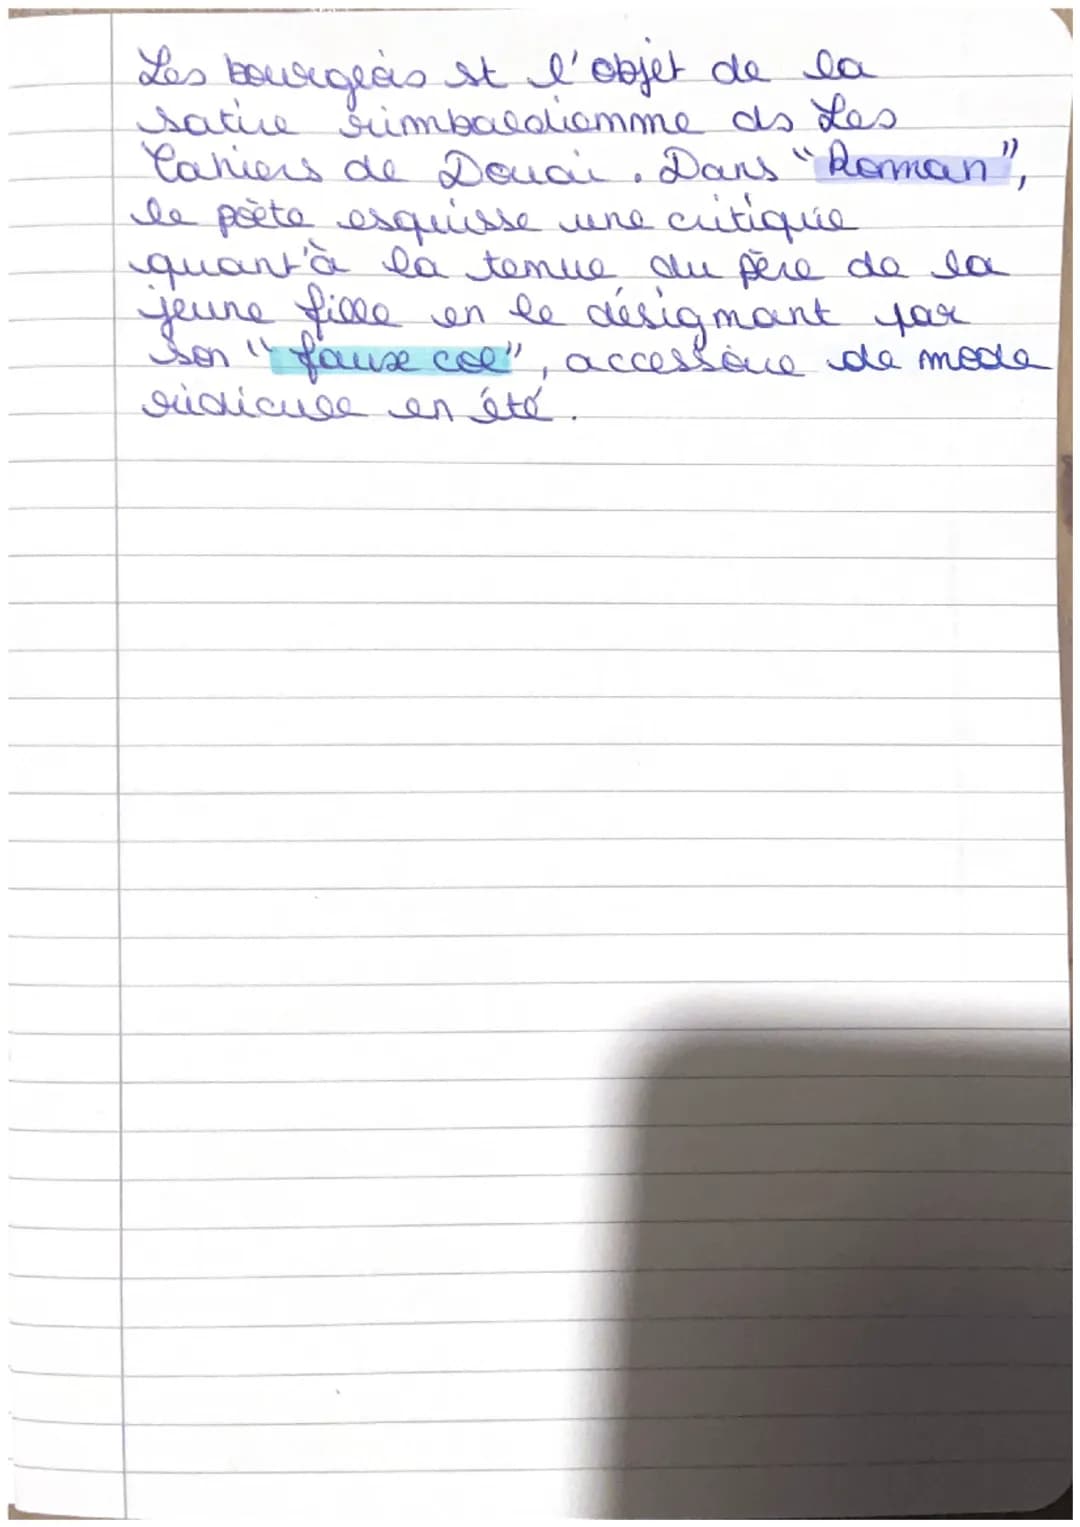 Les bourgeois st l'objet de la
satire rimbaldienne ds Les
Cahiers de Douai. Dans "Roman",
le poète esquisse une critique
quant'à la tenue du père de la
jeune fille en le désignant par
son "faux col", accessoire de mode
ridicule en été.